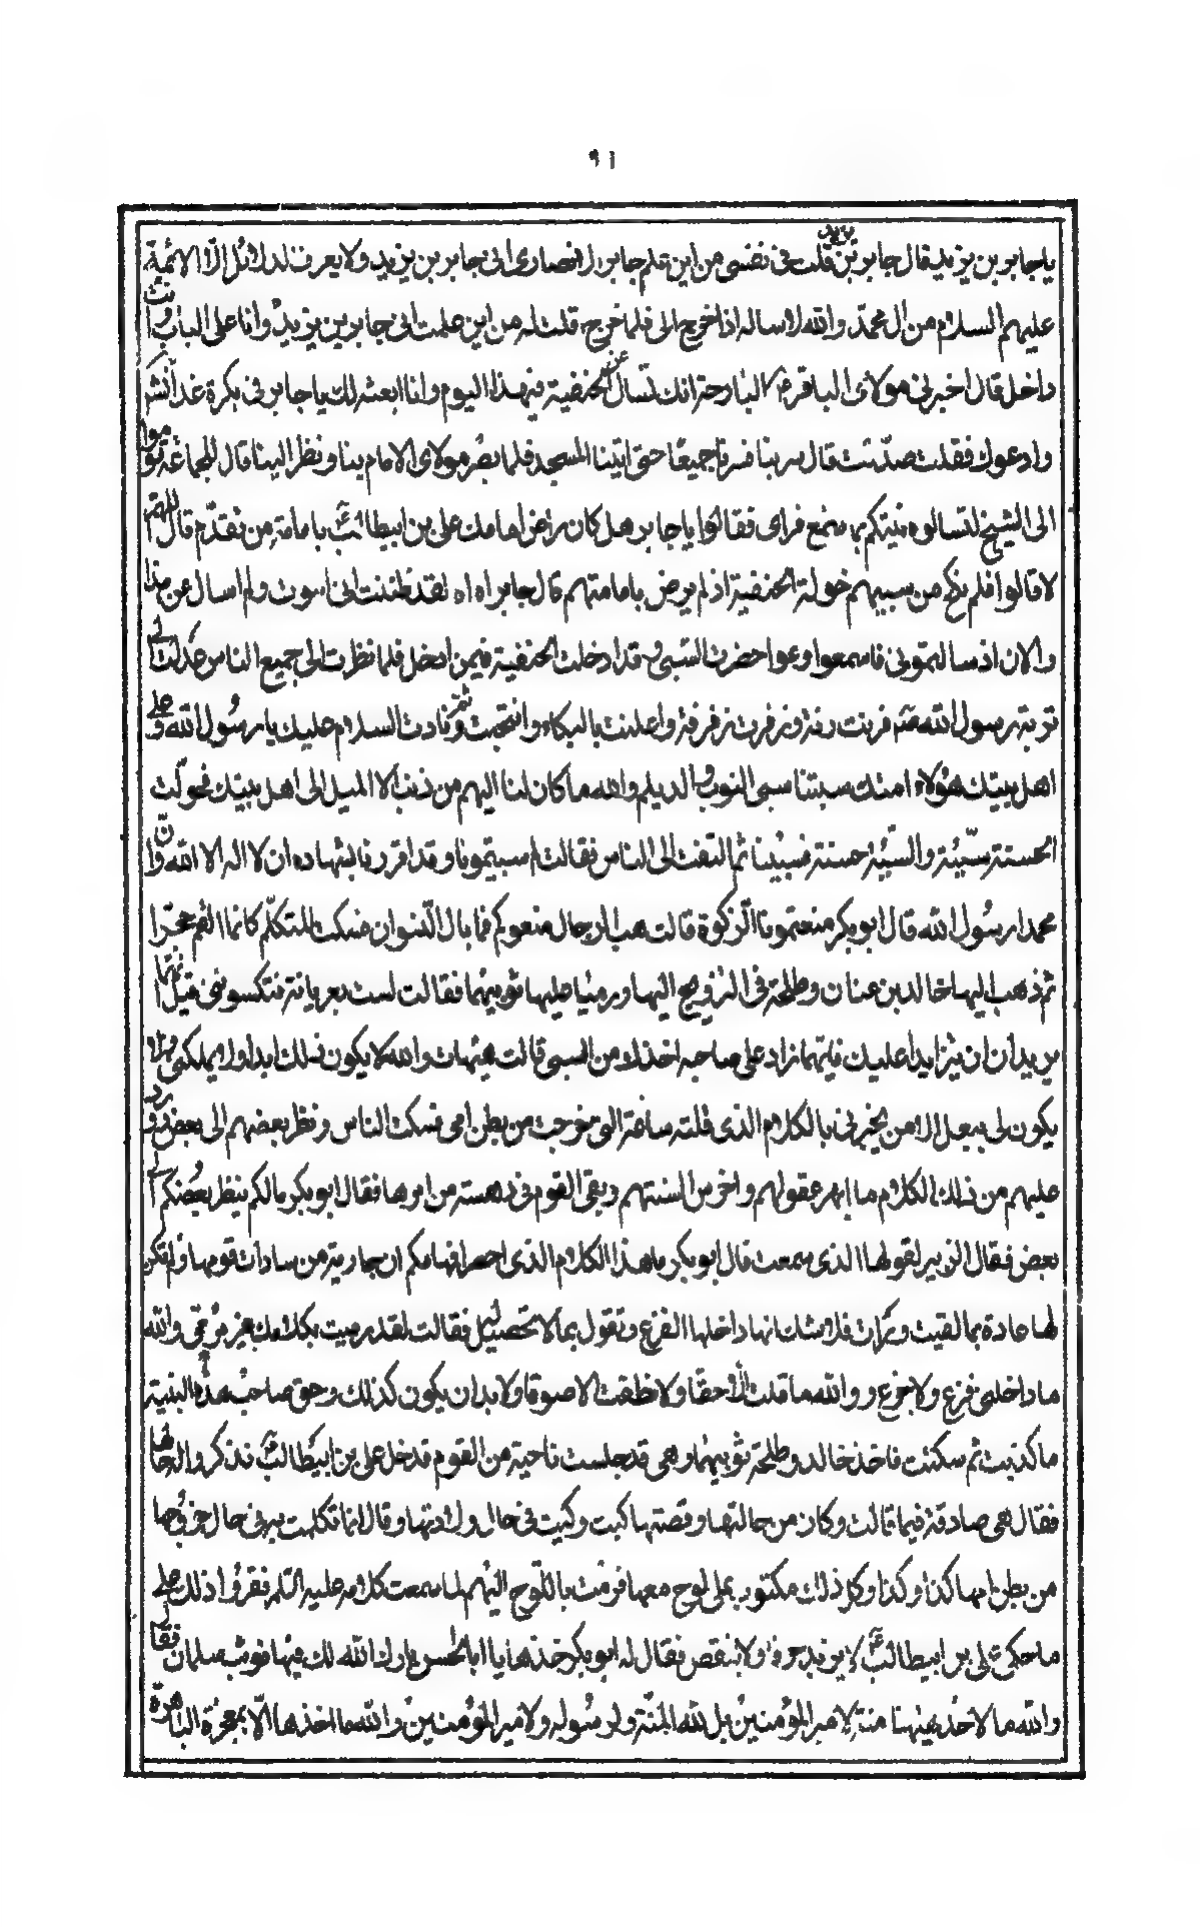 ٩١
يا جابر بن يزيد قال جابر بن يزيد قلت فى نفسى من اين علم جابر الانصارى انى جابر بن يزيد ولا يعرف الدلائل الا الائمة
عليهم السلام من ال محمّد والله لاسالنه اذا خرج الى فلما خرج قلت له من اين علمت انى جابر بن يزيد وانا على الباب وانت
داخل قال اخبرنى مولاى الباقر البارحة انك تسال عن الحنفية فى هذا اليوم وانا ابعثه لك يا جابر فى بكرة غد
وادعوك فقلت صدقت قال سر بنا فسرنا جميعًا حتى اتينا المسجد فلما بصر مولاى الامام بنا ونظر الينا قال للجماعة قوموا
الى الشيخ لتسالوه فقالوا يا جابر هل كان راض امامك على بن ابيطالب بامامة من تقدّم قال اللهم
لا قالوا فلم نكح من سبيهم خولة الحنفية اذ لم يرض بامامتهم قال جابر اه اه لقد ظننت انى اموت ولم اسال عن هذا
والان اذ سالتمونى فاسمعوا وعوا حضرت السّبى وقد ادخلت الحنفية فيمن ادخل فلما نظرت الى جميع الناس عدلت الى
تربة رسول الله فرنت رنة وزفرت زفرة واعلنت بالبكاء وانتحبت ثم نادت السلام عليك يا رسول الله وعلى
اهل بيتك هؤلاء امتك سبتنا سبى النوب والديلم والله ما كان لنا اليهم من ذنب الا الميل الى اهل بيتك فحولت
الحسنة سيّئة والسّيّئة حسنة فسبينا ثم التفت الى الناس فقالت لم سبيتمونا وقد اقررنا بشهادة ان لا اله الا الله وانّ
محمدا رسول الله قال ابو بكر منعتمونا الزكوة قالت هب الرجال منعوكم فما بال النسوان فسكت المتكلّم كانما القم حجرا
ثم ذهب اليها خالد بن عنان وطلحة فى التزويج اليها ورميا عليها ثوبيهما فقالت لست بعريانة فتكسونى قيل انهما
يريدان ان يتزايدا عليك فايّهما زاد على صاحبه اخذك من السبى قالت هيهات والله لا يكون ذلك ابدا ولا يملكنى ولا
يكون لى ببعل الا من يخبرنى بالكلام الذى قلته ساعة التى خرجت من بطن امى فسكت الناس ونظر بعضهم الى بعض وورد
عليهم من ذلك الكلام ما ابهر عقولهم واخرس السنتهم وبقى القوم فى دهشة من امرها فقال ابو بكر مالكم ينظر بعضكم الى
بعض فقال الزبير لقولها الذى سمعت قال ابو بكر ما هذا الكلام الذى احصر افهامكم ان جارية من سادات قومها ولم تكن
لها عادة بما لقيت ورات فلا شك انها داخلها الفزع وتقول بما لا تحصيل له فقالت لقد رميت بكلامك غير مرمى والله
ما داخلنى فزع ولا جزع ووالله ما قلت الا حقا ولا نطقت الا صدقا ولا بد ان يكون كذلك وحق صاحب هذه البنية
ما كذبت ثم سكتت فاخذ خالد وطلحة ثوبيهما وهى قد جلست ناحية من القوم فدخل على بن ابيطالب فذكروا له حالها
فقال هى صادقة فيما قالت وكان من حالتها وقصتها كيت وكيت فى حال ولادتها وقال انما تكلمت به فى حال خروجها
من بطن امها كذا وكذا وكل ذلك مكتوب على لوح معها فرمت باللوح اليهم لما سمعت كلامه عليه السلم فقرؤا ذلك على
ما حكى على بن ابيطالب لا يزيد حرفا ولا ينقص فقال له ابو بكر خذها يا ابا الحسن بارك الله لك فيها فوثب سلمان فقال
والله ما لاحد هيهنا منة لامير المؤمنين بل لله المنّة ولرسوله ولامير المؤمنين والله ما اخذها الّا بمعجزة الباهرة